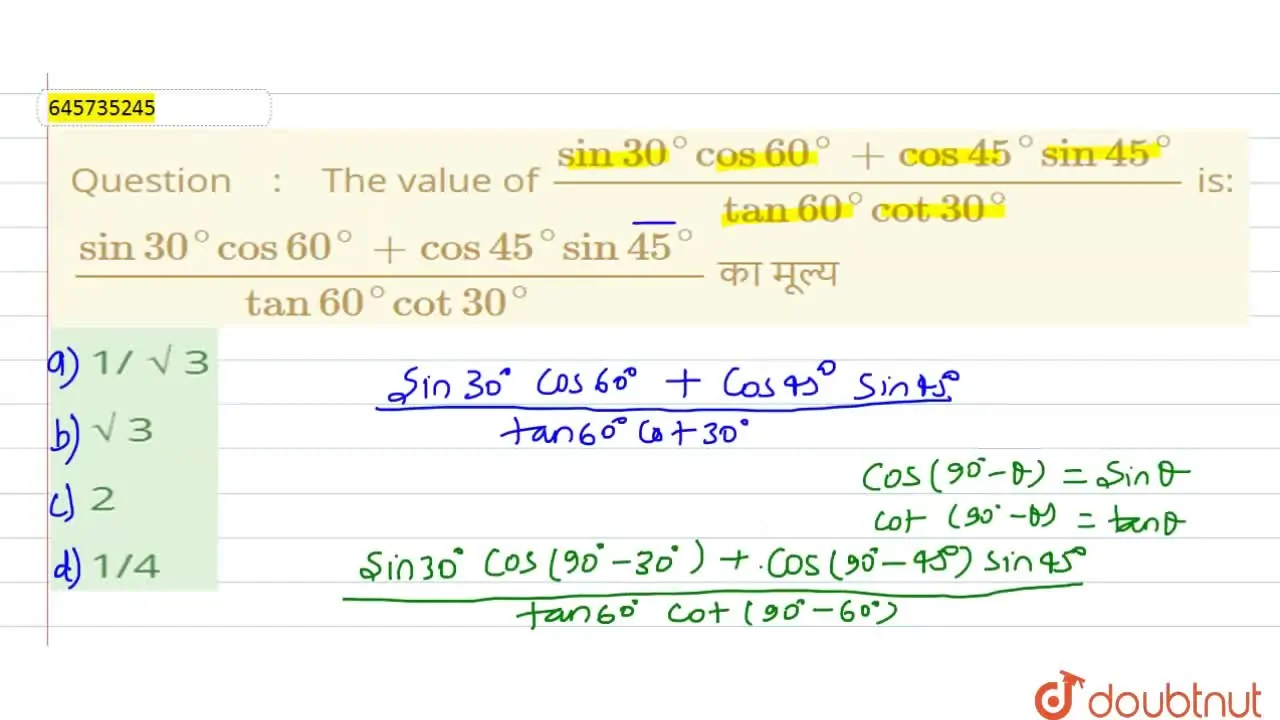 645735245
Question : The value of (sin 30° cos 60° + cos 45° sin 45°)/(tan 60° cot 30°) is:
(sin 30° cos 60° + cos 45° sin 45°)/(tan 60° cot 30°) का मूल्य
a) 1/ √ 3
b) √ 3
c) 2
d) 1/4
Sin 30° Cos 60° + Cos 45° Sin 45°
tan 60° Cot 30°
Cos (90° - θ) = Sin θ
Cot (90° - θ) = tan θ
Sin 30° Cos (90° - 30°) + Cos (90° - 45°) Sin 45°
tan 60° Cot (90° - 60°)
doubtnut